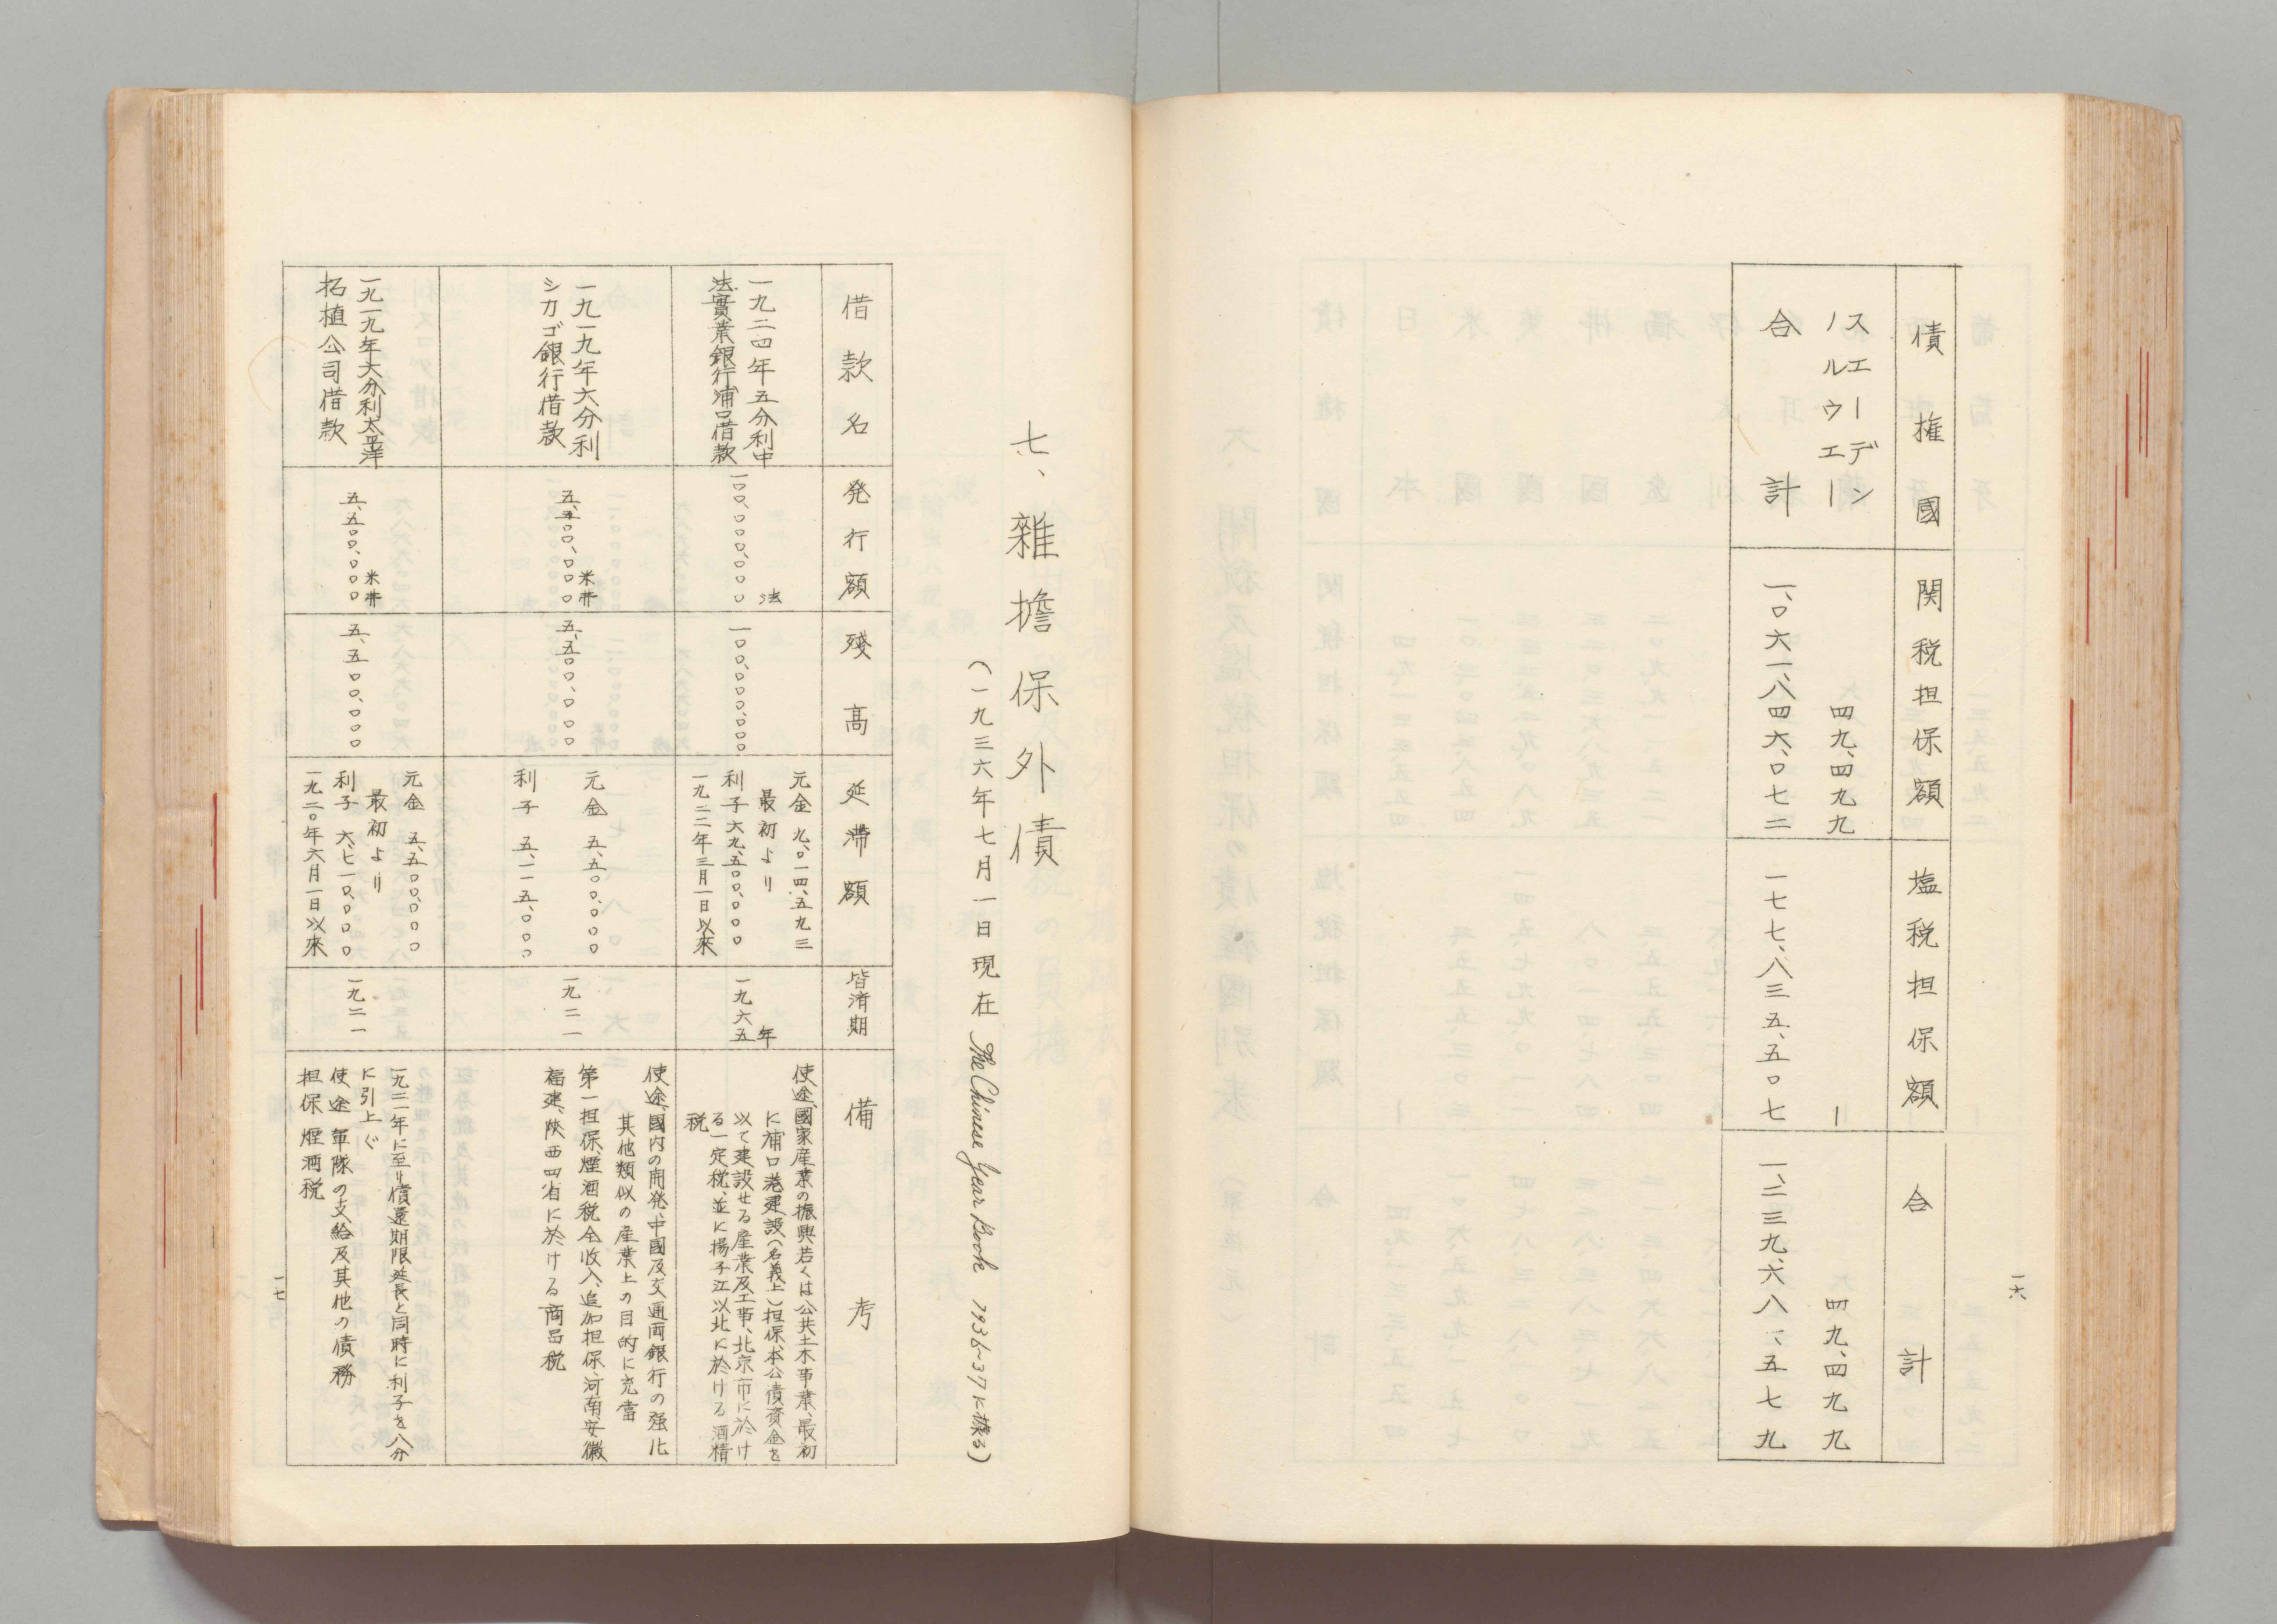 債權國
関税担保額
塩税担保額
合計
スエーデン
ノルウエー
四九、四九九
―
四九、四九九
合計
一、〇六一、八四六、〇七二
一七七、八三五、五〇七
一、二三九、六八一、五七九
一六
七、雜擔保外債
(一九三六年七月一日現在 The Chinese Year Book 1936~37に據る)
借款名
発行額
殘高
延滯額
皆済期
備考
一九二四年五分利中
法實業銀行浦口借款
法
一〇〇、〇〇〇、〇〇〇
一〇〇、〇〇〇、〇〇〇
元金 九、〇一四、五九三
最初より
利子 六九、五〇〇、〇〇〇
一九二二年三月一日以來
年
一九六五
使途、國家産業の振興若くは公共土木事業、最初
に浦口港建設(名義上)担保、本公債資金を
以て建設せる産業及工事、北京市に於け
る一定税、並に揚子江以北に於ける酒精
税
一九一九年六分利
シカゴ銀行借款
米弗
五、五〇〇、〇〇〇
五、五〇〇、〇〇〇
元金 五、五〇〇、〇〇〇
利子 五、一一五、〇〇〇
一九二一
使途、國内の開発、中國及交通両銀行の强化
其他類似の産業上の目的に充當
第一担保、煙酒税全收入、追加担保、河南、安徽
福建、陝西四省に於ける商品税
一九一九年六分利太平洋
拓植公司借款
米弗
五、五〇〇、〇〇〇
五、五〇〇、〇〇〇
元金 五、五〇〇、〇〇〇
最初より
利子 六、七一〇、〇〇〇
一九二〇年六月一日以來
一九二一
一九二一年に至り償還期限延長と同時に利子を八分
に引上ぐ
使途 軍隊の支給及其他の債務
担保 煙酒税
一七